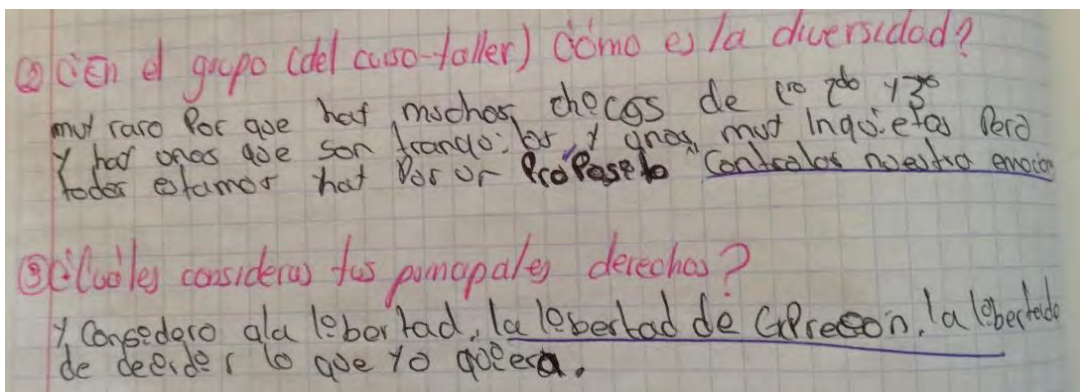 ② ¿En el grupo (del curso-taller) Cómo es la diversidad?
muy raro Por que hay muchos checos de 1ro 2do y 3ro
y hay unos que son tranquilos y unos muy Inquietos Pero
todos estamos hay Por un ProPoseto Controlar nuestra emocion
③ ¿Cuáles consideras tus principales derechos?
y Consedero ala lebertad, la lebertad de ExPreson, la lebertade
de deeider lo que yo quiera.